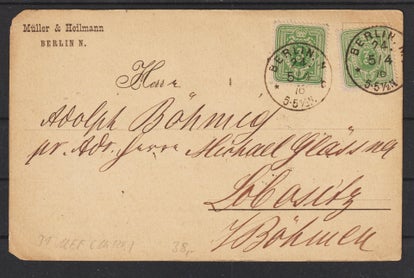 Müller & Heilmann
BERLIN N.
BERLIN. N.
24
5/4
76
* 5-5½N.
BERLIN. N.
24
5/4
76
* 5-5½N.
Herr
Adolph Böhmig
pr. Adr. Herrn Michael Glässner
Lobositz
i/Böhmen
38,-